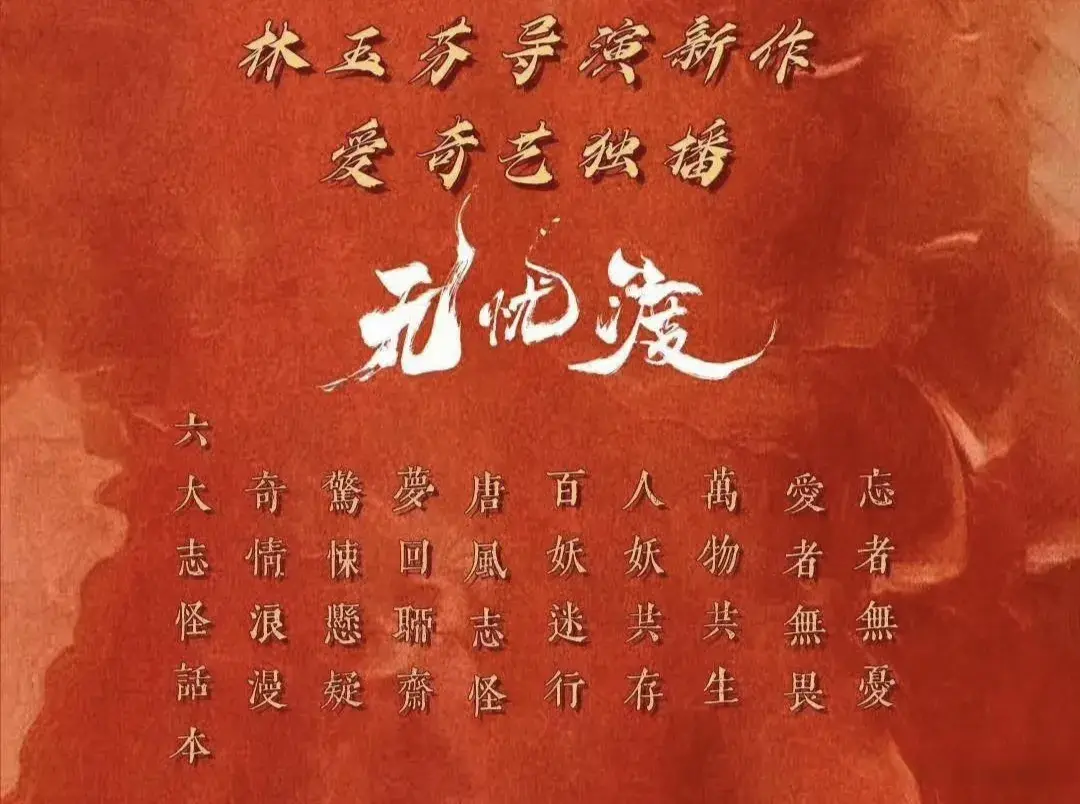 林玉芬导演新作
爱奇艺独播
无忧渡
忘者無憂
愛者無畏
萬物共生
人妖共存
百妖迷行
唐風志怪
夢回聊齋
驚悚懸疑
奇情浪漫
六大志怪話本